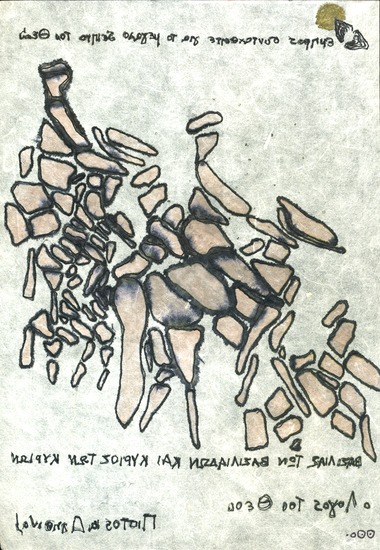 Εμπρος για το μεγαλο δειπνο του Θεού
ΒΑΣΙΛΙΑΣ ΤΩΝ ΒΑΣΙΛΙΑΔΩΝ ΚΑΙ ΚΥΡΙΟΣ ΤΩΝ ΚΥΡΙΩΝ
ο Λογος του Θεου
Πιστος κ Αληθινός